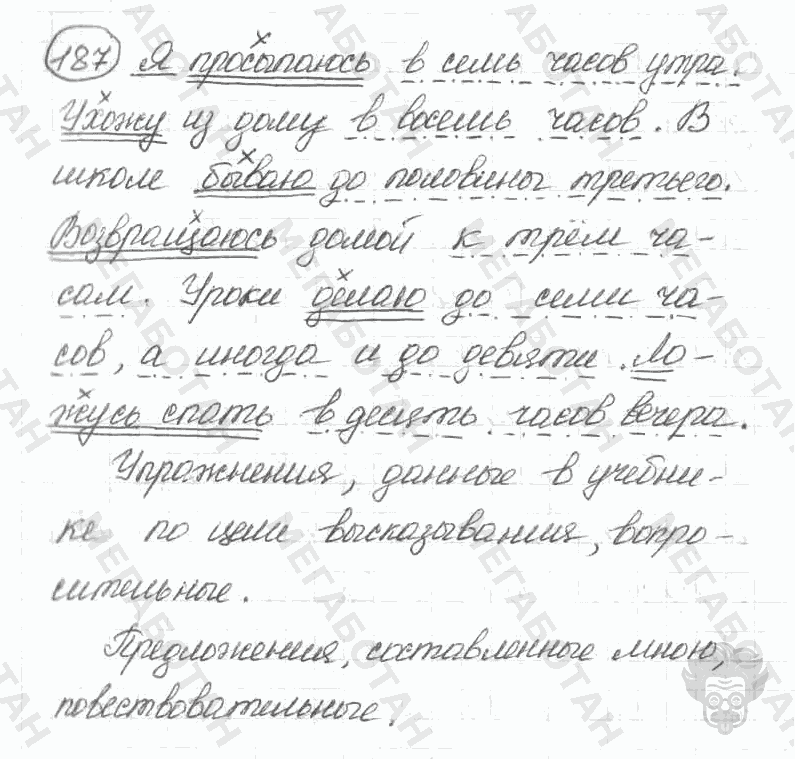 187 Я просыпаюсь в семь часов утра.
Ухожу из дому в восемь часов. В
школе бываю до половины третьего.
Возвращаюсь домой к трём ча-
сам. Уроки делаю до семи ча-
сов, а иногда и до девяти. Ло-
жусь спать в десять часов вечера.
Упражнения, данные в учебни-
ке по цели высказывания, вопро-
сительные.
Предложения, составленные мною,
повествовательные.
МЕГАБОТАН